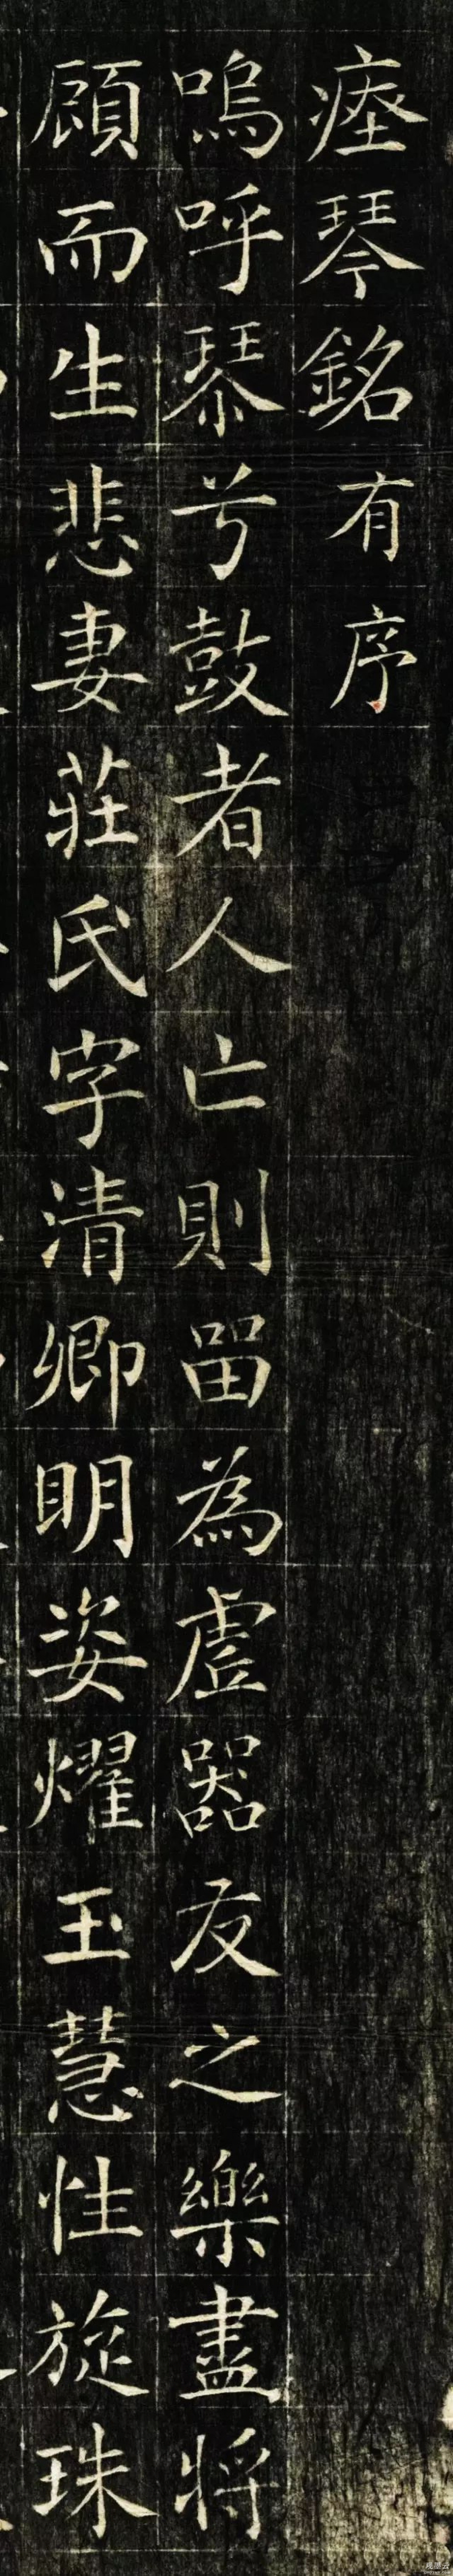 瘞琴銘有序
嗚呼琴兮鼓者人亡則留為虛器友之樂盡將
顧而生悲妻莊氏字清卿明姿燿玉慧性旋珠